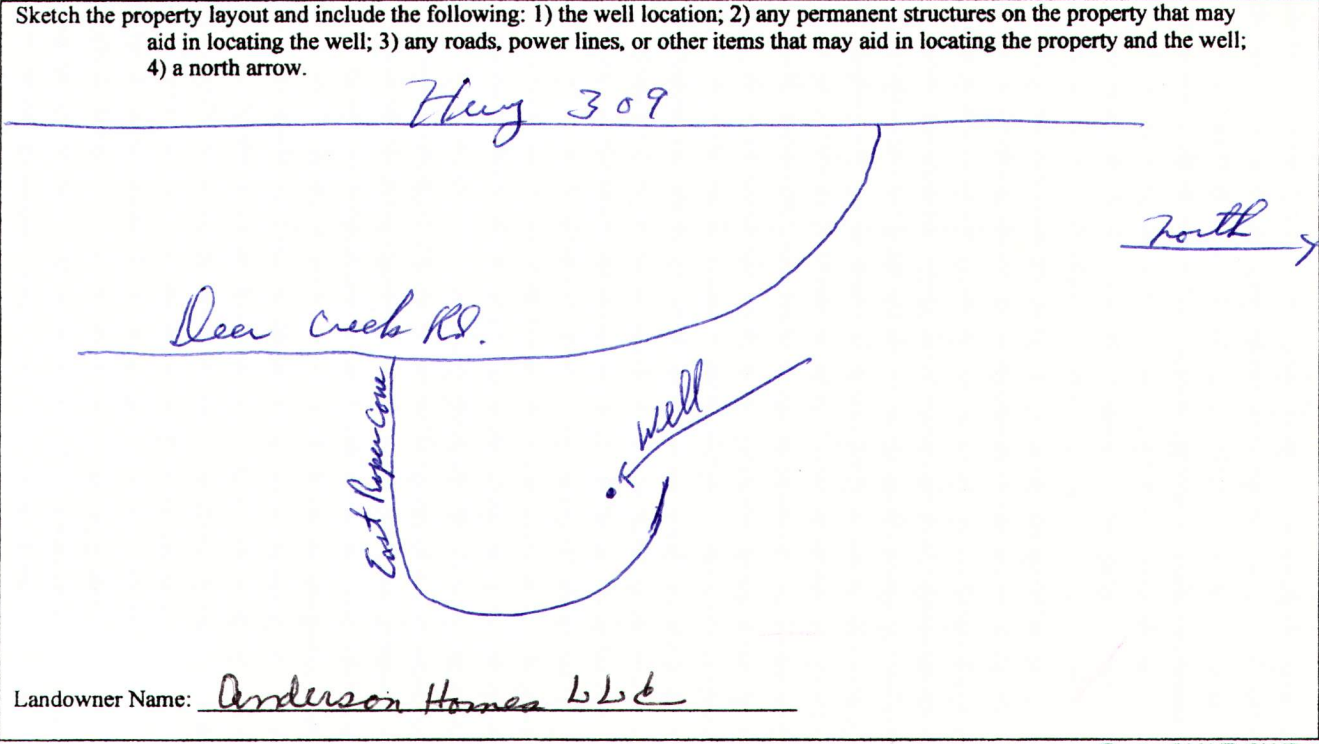 Sketch the property layout and include the following: 1) the well location; 2) any permanent structures on the property that may
aid in locating the well; 3) any roads, power lines, or other items that may aid in locating the property and the well;
4) a north arrow.
Hwy 309
north
Deer Creek Rd.
well
East Roper Cove
Landowner Name: Anderson Homes LLC